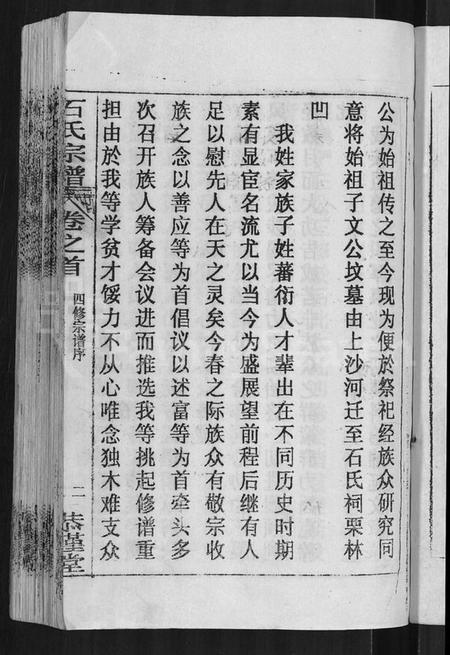 公为始祖传之至今现为便於祭祀经族众研究同
意将始祖子文公坟墓由上沙河迁至石氏祠栗林
凹
我姓家族子姓蕃衍人才辈出在不同历史时期
素有显宦名流尤以当今为盛展望前程后继有人
足以慰先人在天之灵矣今春之际族众有敬宗收
族之念以善应等为首倡议以述富等为首牵头多
次召开族人筹备会议进而推选我等挑起修谱重
担由於我等学贫才馁力不从心唯念独木难支众
石氏宗谱 卷之首 四修宗谱序 二 恭谨堂